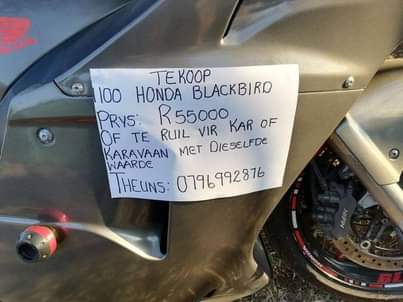 TEKOOP
1100 HONDA BLACKBIRD
PRYS: R55000
OF TE RUIL VIR KAR OF
KARAVAAN MET DIESELFDE
WAARDE
THEUNS: 0796992876